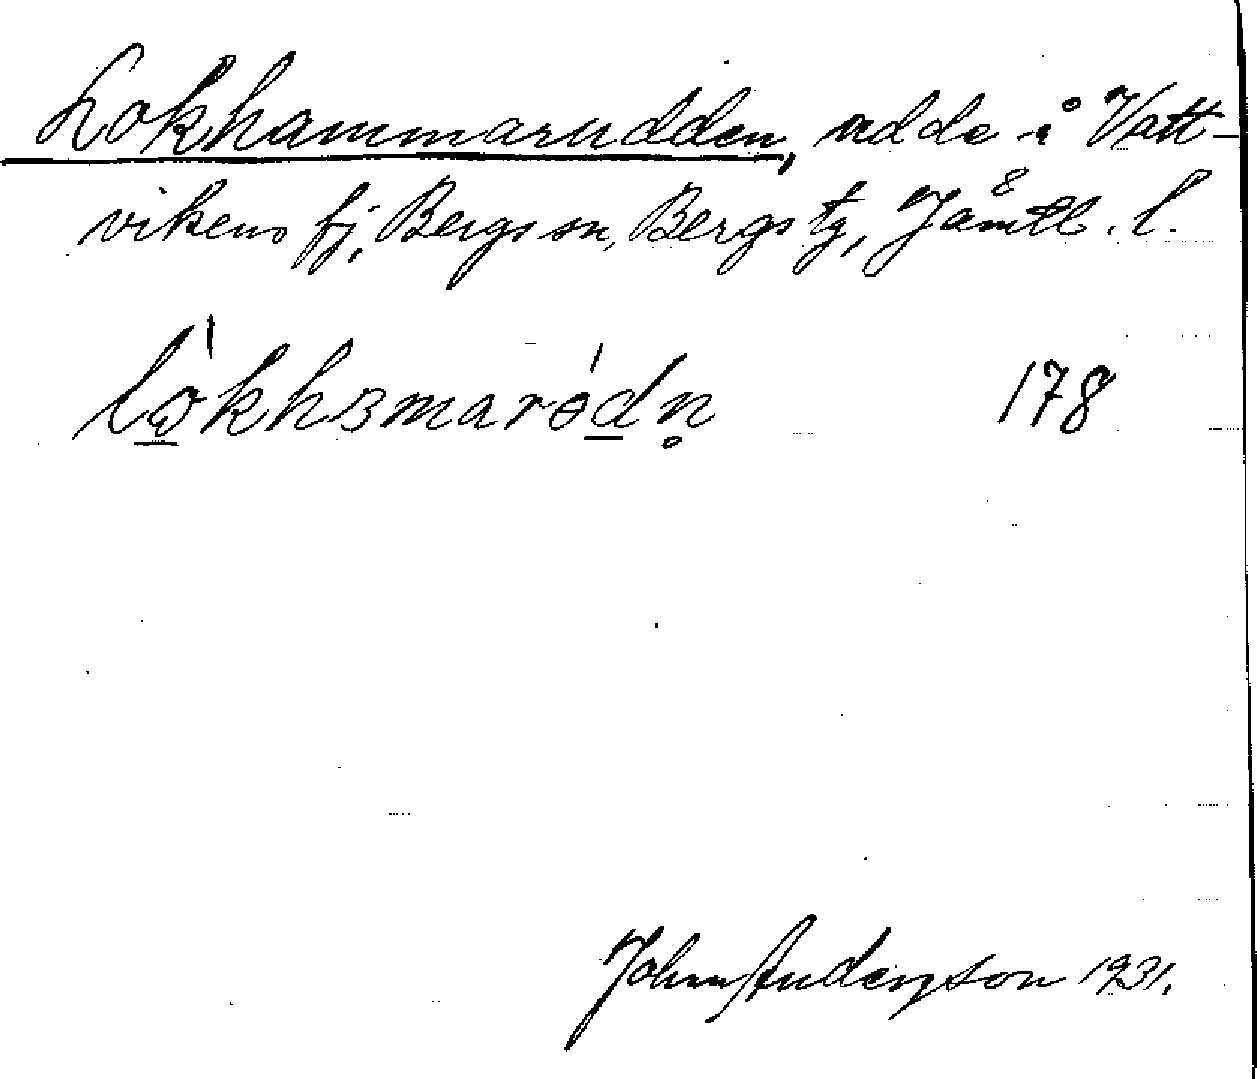 Lokhammarudden, udde i Vatt-
vikens fj, Bergs sn, Bergs tg, Jämtl. l.
lòkhamaródn̥ 178
John Anderzson 1931.